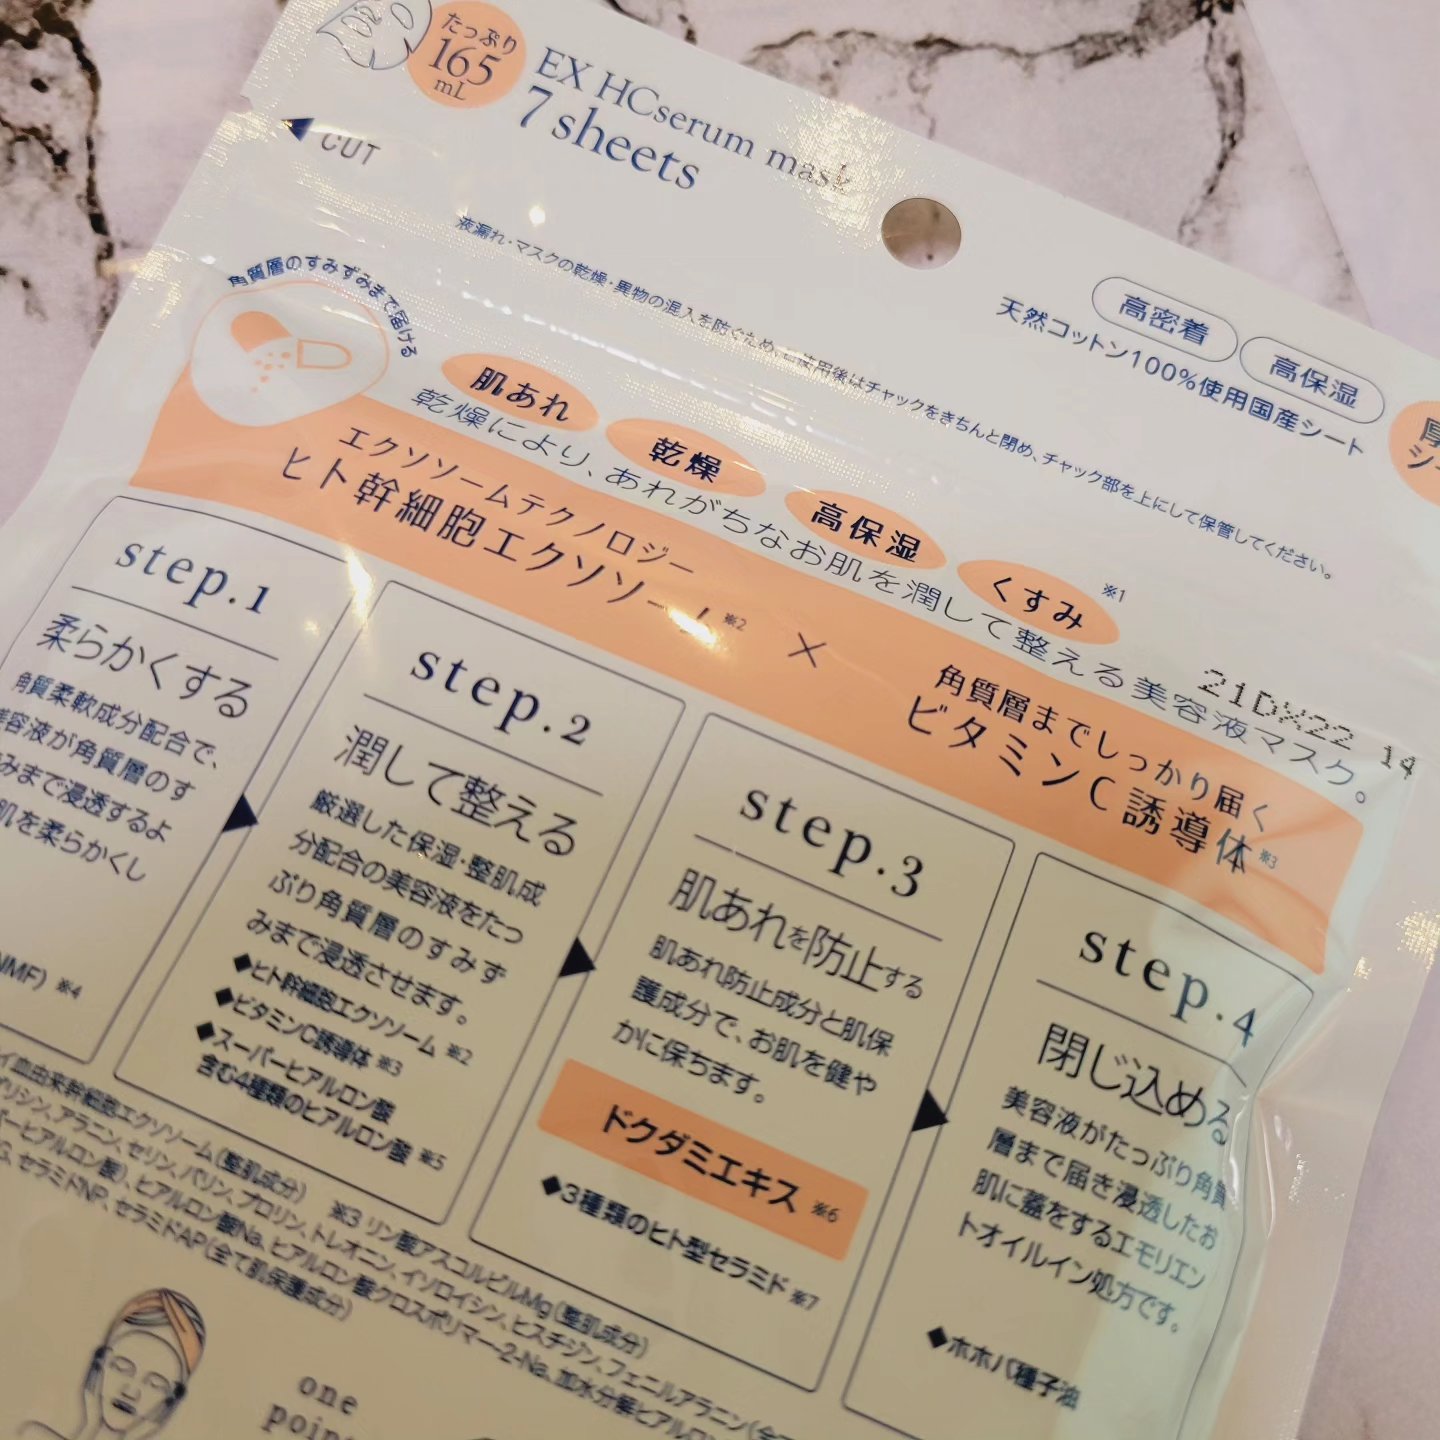 たっぷり
165
mL
EX HCserum mask
7 sheets
CUT
液漏れ・マスクの乾燥・異物の混入を防ぐため、ご使用後はチャックをきちんと閉め、チャック部を上にして保管してください。
高密着
高保湿
天然コットン100%使用国産シート
角質層のすみずみまで届ける
肌あれ
乾燥
高保湿
くすみ
※1
乾燥により、あれがちなお肌を潤して整える美容液マスク。
21DX22 14
エクソソームテクノロジー
ヒト幹細胞エクソソーム※2
×
角質層までしっかり届く
ビタミンC誘導体※3
step.1
柔らかくする
角質柔軟成分配合で、
美容液が角質層のす
みまで浸透するよ
肌を柔らかくし
NMF) ※4
step.2
潤して整える
厳選した保湿・整肌成
分配合の美容液をたっ
ぷり角質層のすみず
みまで浸透させます。
◆ヒト幹細胞エクソソーム ※2
◆ビタミンC誘導体 ※3
◆スーパーヒアルロン酸
含む4種類のヒアルロン酸 ※5
step.3
肌あれを防止する
肌あれ防止成分と肌保
護成分で、お肌を健や
かに保ちます。
ドクダミエキス ※6
◆3種類のヒト型セラミド ※7
step.4
閉じ込める
美容液がたっぷり角質
層まで届き浸透したお
肌に蓋をするエモリエン
トオイルイン処方です。
◆ホホバ種子油
血由来幹細胞エクソソーム(整肌成分) ※3 リン酸アスコルビルMg(整肌成分)
リシン、アラニン、セリン、バリン、プロリン、トレオニン、イソロイシン、ヒスチジン、フェニルアラニン
ーヒアルロン酸)、ヒアルロン酸Na、ヒアルロン酸クロスポリマー-2-Na、加水分解ヒアルロン
セラミドNP、セラミドAP(全て肌保護成分)
one
point